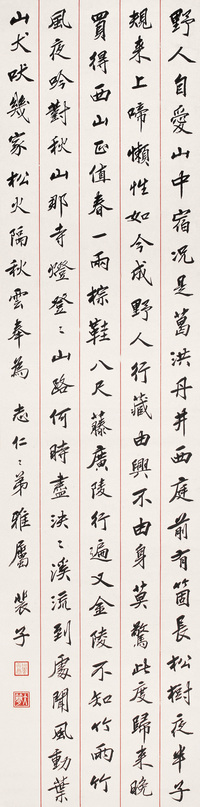 野人自愛山中宿況是葛洪丹井西庭前有箇長松樹夜半子
規来上啼懶性如今成野人行藏由興不由身莫驚此度歸来晚
買得西山正值春一兩棕鞋八尺藤廣陵行遍又金陵不知竹雨竹
風夜吟對秋山那寺燈登〻山路何時盡決〻溪流到處聞風動葉
山犬吠幾家松火隔秋雲奉為 志仁〻弟雅屬 裴子